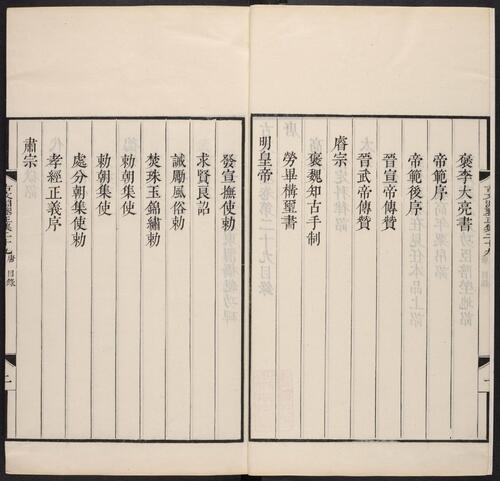 褒李大亮書
帝範序
帝範後序
晉宣帝傳贊
晉武帝傳贊
睿宗
褒魏知古手制
勞畢構璽書
明皇帝
發宣撫使勅
求賢良詔
誡勵風俗勅
焚珠玉錦繡勅
勅朝集使
勅朝集使
處分朝集使勅
孝經正義序
肅宗
唐 目錄